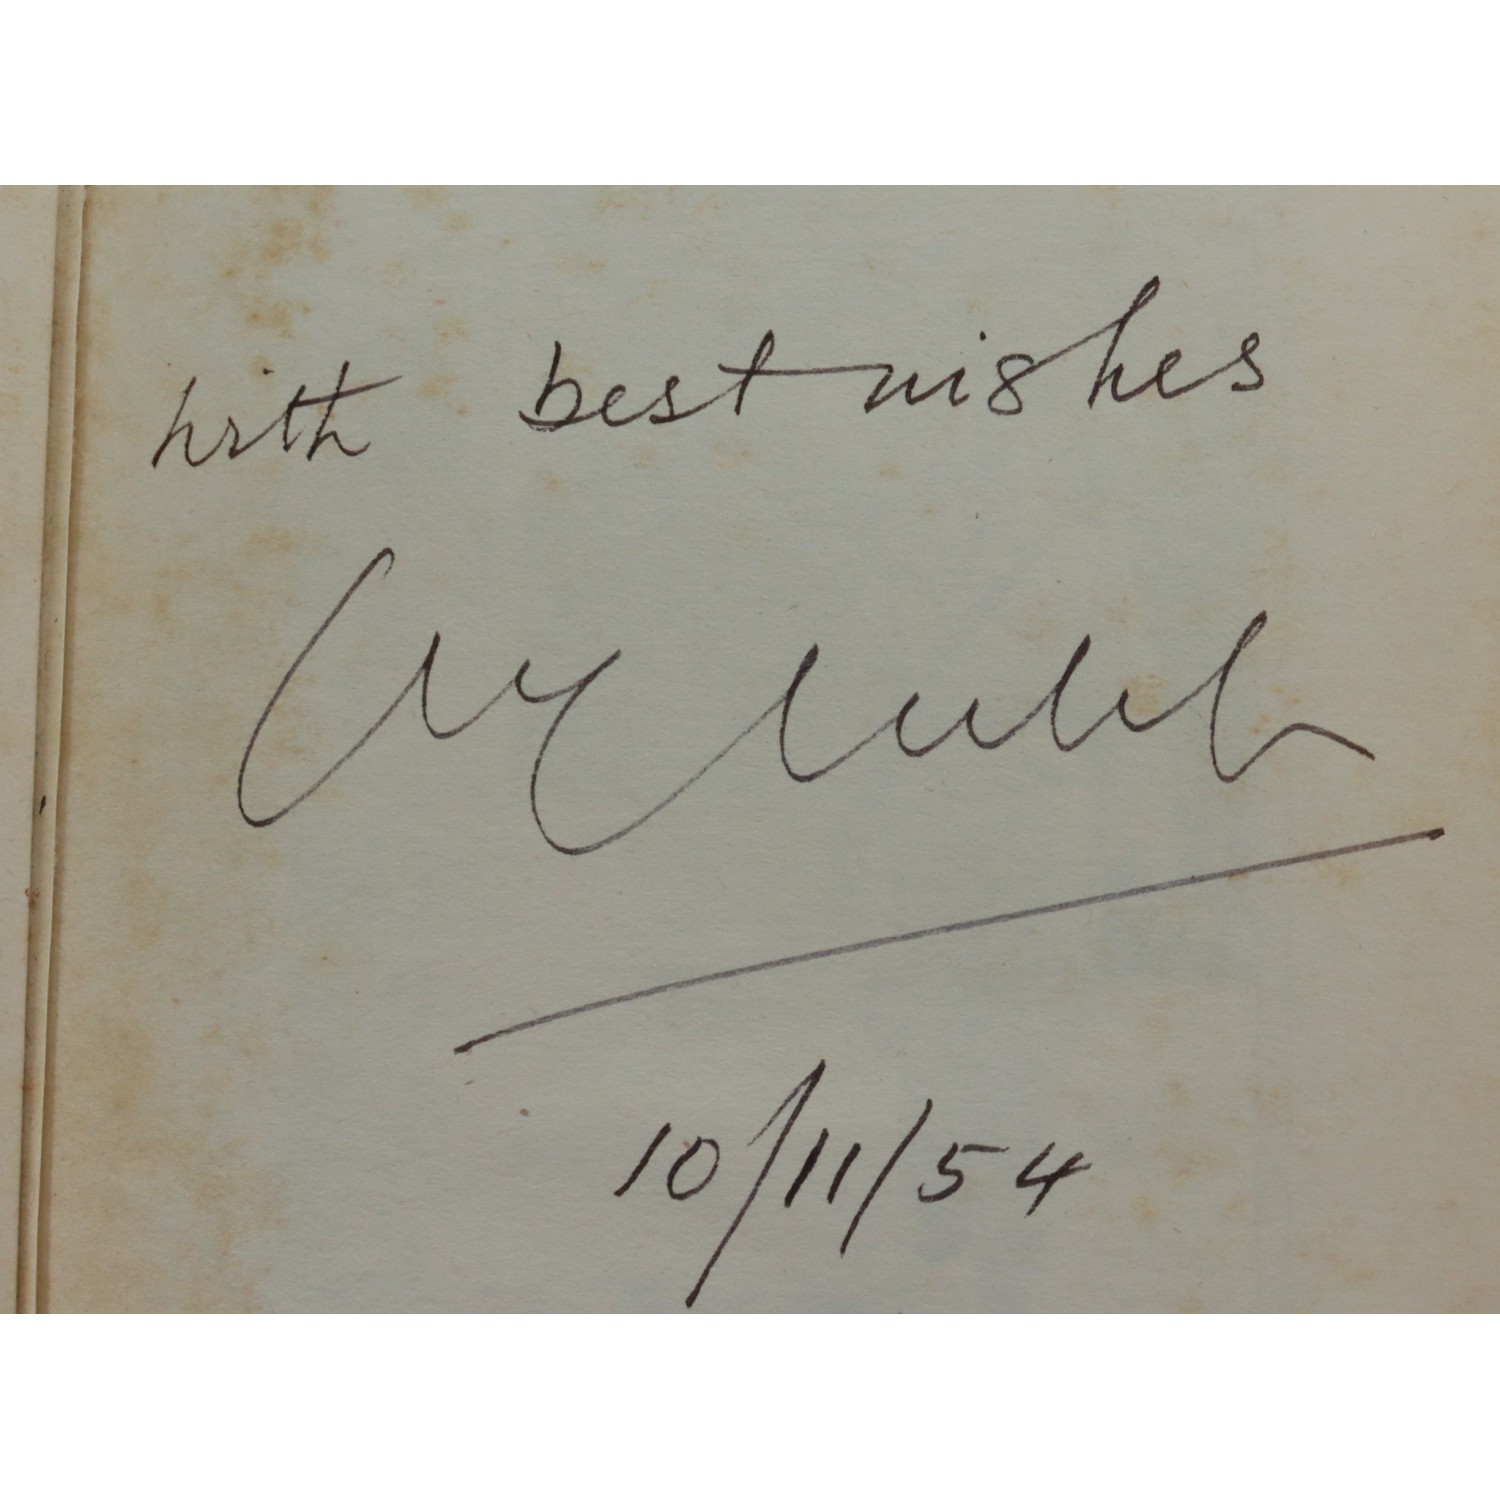 with best wishes
10/11/54